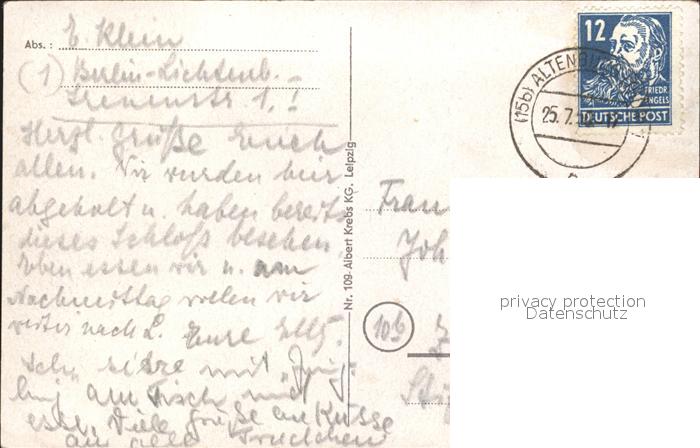 Abs.: E. Klein
(1) Berlin-Lichtenb.
Irenenstr 1.!
Herzl. Grüße Euch
allen. Wir wurden hier
abgeholt u. haben bereits
dieses Schloß besehen.
Eben essen wir u. am
Nachmittag wollen wir
weiter nach L. Eure Elly.
Ich sitze mit "Jüng-
ling" am Tisch und
esse. Viele Grüße an Küsse
an alle Trudchen
Nr. 109 Albert Krebs KG. Leipzig
12
FRIEDR.
ENGELS
DEUTSCHE POST
(15b) ALTENBURG
25. 7.
Frau
Joh
10b
privacy protection
Datenschutz